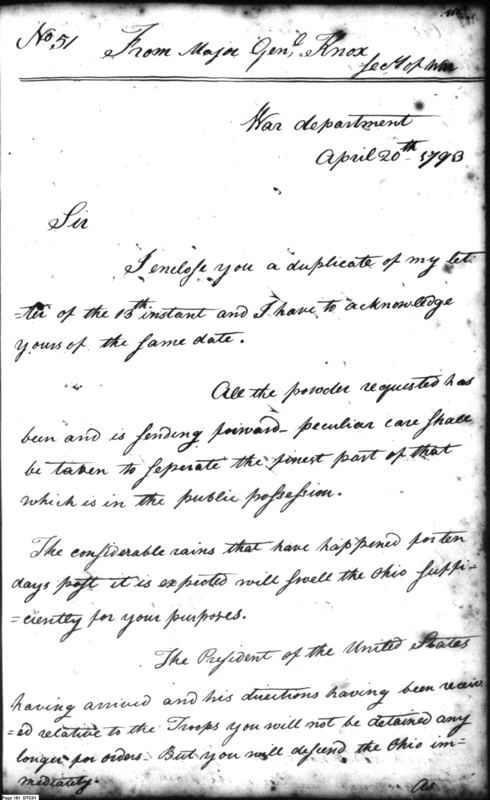 No. 51 From Major Genl. Knox
Sect of War
War department
April 20th 1793
Sir
I enclose you a duplicate of my let-
=ter of the 13th instant and I have to acknowledge
yours of the same date.
All the powder requested has
been and is sending forward - peculiar care shall
be taken to seperate the finest part of that
which is in the public possession.
The considerable rains that have happened for ten
days past it is expected will swell the Ohio suffi-
=ciently for your purposes.
The President of the United States
having arrived and his directions having been receiv
=ed relative to the Troops you will not be detained any
longer for orders. But you will descend the Ohio im-
mediately.
As
Page 181 DTC01